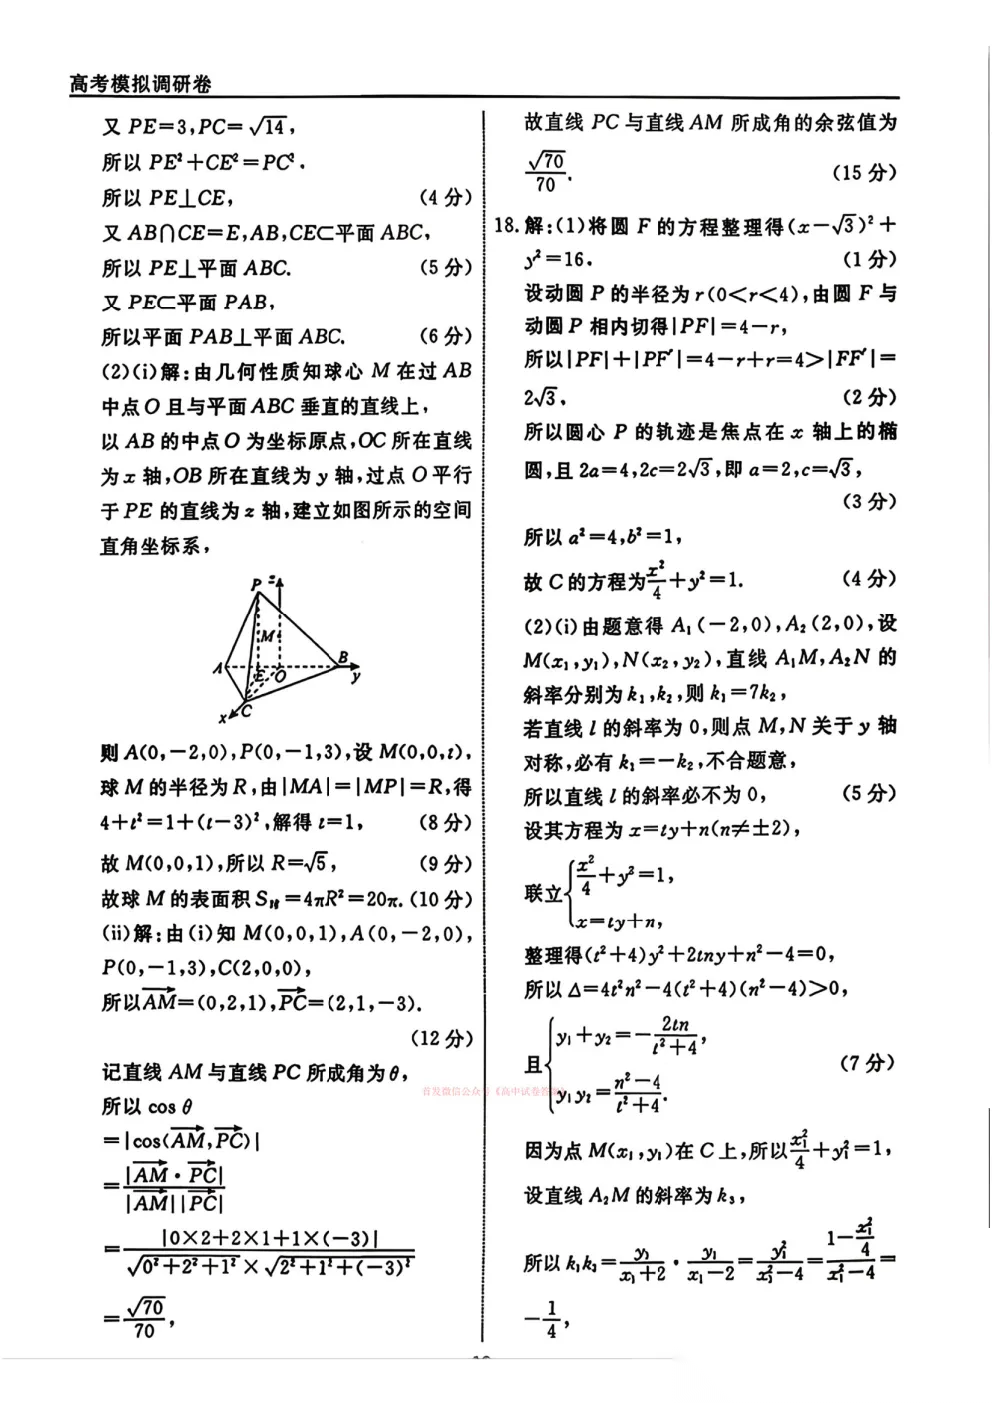 高考模拟调研卷
又 PE=3,PC=√14,
所以 PE²+CE²=PC².
所以 PE⊥CE, (4分)
又 AB∩CE=E,AB,CE⊂平面 ABC,
所以 PE⊥平面 ABC. (5分)
又 PE⊂平面 PAB,
所以平面 PAB⊥平面 ABC. (6分)
(2)(i)解:由几何性质知球心 M 在过 AB
中点 O 且与平面 ABC 垂直的直线上,
以 AB 的中点 O 为坐标原点,OC 所在直线
为 x 轴,OB 所在直线为 y 轴,过点 O 平行
于 PE 的直线为 z 轴,建立如图所示的空间
直角坐标系,
P z
M
A E O B y
x C
则 A(0,−2,0),P(0,−1,3),设 M(0,0,t),
球 M 的半径为 R,由|MA|=|MP|=R,得
4+t²=1+(t−3)²,解得 t=1, (8分)
故 M(0,0,1),所以 R=√5, (9分)
故球 M 的表面积 S球=4πR²=20π. (10分)
(ii)解:由(i)知 M(0,0,1),A(0,−2,0),
P(0,−1,3),C(2,0,0),
所以AM→=(0,2,1),PC→=(2,1,−3).
(12分)
记直线 AM 与直线 PC 所成角为 θ,
所以 cos θ
=|cos⟨AM→,PC→⟩|
=|AM→·PC→|/(|AM→||PC→|)
=|0×2+2×1+1×(−3)|/(√(0²+2²+1²)×√(2²+1²+(−3)²))
=√70/70,
故直线 PC 与直线 AM 所成角的余弦值为
√70/70. (15分)
18.解:(1)将圆 F 的方程整理得(x−√3)²+
y²=16. (1分)
设动圆 P 的半径为 r(0<r<4),由圆 F 与
动圆 P 相内切得|PF|=4−r,
所以|PF|+|PF′|=4−r+r=4>|FF′|=
2√3, (2分)
所以圆心 P 的轨迹是焦点在 x 轴上的椭
圆,且 2a=4,2c=2√3,即 a=2,c=√3,
(3分)
所以 a²=4,b²=1,
故 C 的方程为x²/4+y²=1. (4分)
(2)(i)由题意得 A₁(−2,0),A₂(2,0),设
M(x₁,y₁),N(x₂,y₂),直线 A₁M,A₂N 的
斜率分别为 k₁,k₂,则 k₁=7k₂,
若直线 l 的斜率为 0,则点 M,N 关于 y 轴
对称,必有 k₁=−k₂,不合题意,
所以直线 l 的斜率必不为 0, (5分)
设其方程为 x=ty+n(n≠±2),
联立{x²/4+y²=1,
x=ty+n,
整理得(t²+4)y²+2tny+n²−4=0,
所以 Δ=4t²n²−4(t²+4)(n²−4)>0,
且{y₁+y₂=−2tn/(t²+4),
y₁y₂=(n²−4)/(t²+4). (7分)
首发微信公众号《高中试卷答案》
因为点 M(x₁,y₁)在 C 上,所以x₁²/4+y₁²=1,
设直线 A₂M 的斜率为 k₃,
所以 k₁k₃=y₁/(x₁+2)·y₁/(x₁−2)=y₁²/(x₁²−4)=(1−x₁²/4)/(x₁²−4)=
−1/4,